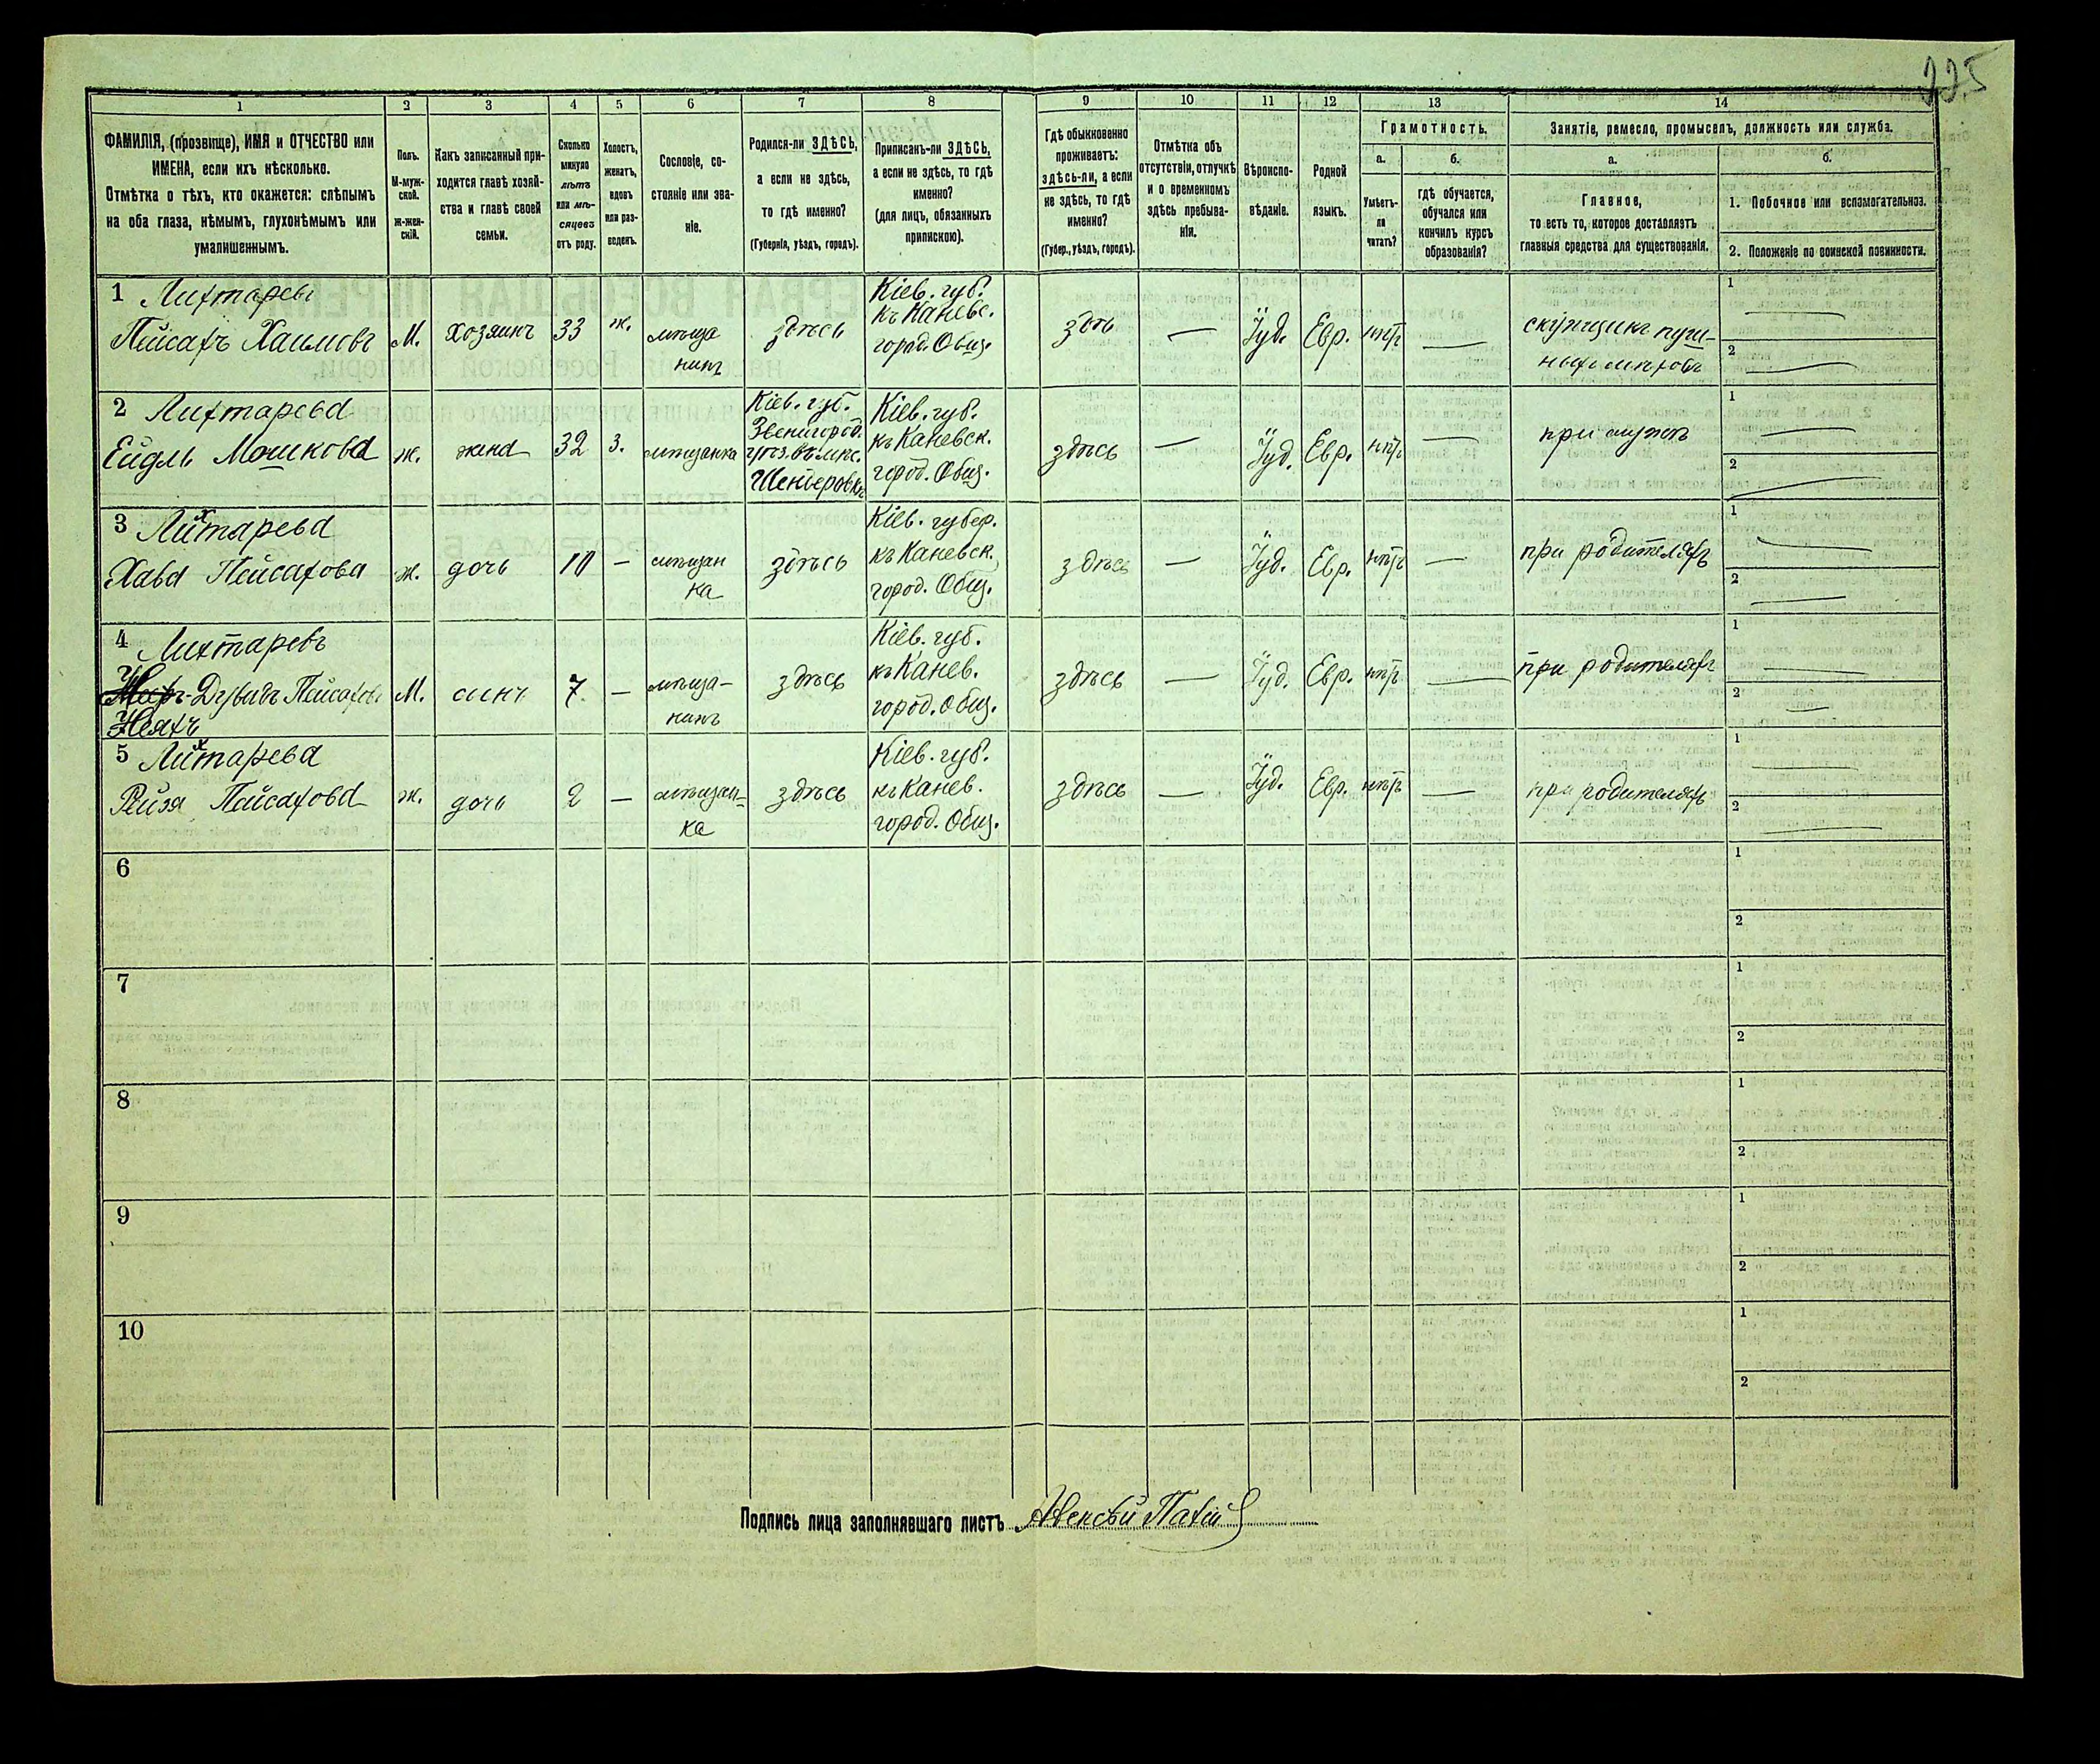 225
1
2
3
4
5
6
7
8
9
10
11
12
13
14
ФАМИЛІЯ, (прозвище), ИМЯ и ОТЧЕСТВО или
ИМЕНА, если ихъ нѣсколько.
Отмѣтка о тѣхъ, кто окажется: слѣпымъ
на оба глаза, нѣмымъ, глухонѣмымъ или
умалишеннымъ.
Полъ.
М-муж-
ской.
ж-жен-
скій.
Какъ записанный при-
ходится главѣ хозяй-
ства и главѣ своей
семьи.
Сколько
минуло
лѣтъ
или мѣ-
сяцевъ
отъ роду.
Холостъ,
женатъ,
вдовъ
или раз-
веденъ.
Сословіе, со-
стояніе или зва-
ніе.
Родился-ли ЗДѢСЬ,
а если не здѣсь,
то гдѣ именно?
(Губернія, уѣздъ, городъ).
Приписанъ-ли ЗДѢСЬ,
а если не здѣсь, то гдѣ
именно?
(для лицъ, обязанныхъ
припискою).
Гдѣ обыкновенно
проживаетъ:
здѣсь-ли, а если
не здѣсь, то гдѣ
именно?
(Губер., уѣздъ, городъ).
Отмѣтка объ
отсутствіи, отлучкѣ
и о временномъ
здѣсь пребыва-
ніи.
Вѣроиспо-
вѣданіе.
Родной
языкъ.
Грамотность.
а.
Умѣетъ-
ли
читать?
б.
гдѣ обучается,
обучался или
кончилъ курсъ
образованія?
Занятіе, ремесло, промыселъ, должность или служба.
а.
Главное,
то есть то, которое доставляетъ
главныя средства для существованія.
б.
1. Побочное или вспомогательноэ.
2. Положеніе по воинской повинности.
1 Лихтаревъ
Пейсахъ Хаимовъ
М.
хозяинъ
33
ж.
мѣща
нинъ
здѣсь
Кіев. губ.
къ Каневс.
город. Общ.
здѣ
Іуд.
Евр.
нѣтъ
скупщикъ пуш-
ныхъ мѣховъ
1
2
2 Лихтарева
Ейдль Мошкова
ж.
жена
32
з.
мѣщанка
Кіев. губ.
Звенигород.
Кіев. губ.
къ Каневск.
город. Общ.
здѣсь
Іуд.
Евр.
нѣтъ
при мужѣ
1
2
3 Лихтарева
Хава Пейсахова
ж.
дочь
10
мѣщан
ка
здѣсь
Кіев. губер.
къ Каневск.
город. Общ.
здѣсь
Іуд.
Евр.
нѣтъ
при родителяхъ
1
2
4 Лихтаревъ
М.
сынъ
7
мѣща-
нинъ
здѣсь
Кіев. губ.
къ Канев.
город. Общ.
здѣсь
Іуд.
Евр.
нѣтъ
при родителяхъ
1
2
5 Лихтарева
Рейзя Пейсахова
ж.
дочь
2
мѣщан-
ка
здѣсь
Кіев. губ.
къ Канев.
город. Общ.
здѣсь
Іуд.
Евр.
нѣтъ
при родителяхъ
1
2
6
1
2
7
1
2
8
1
2
9
1
2
10
1
2
Подпись лица заполнявшаго листъ